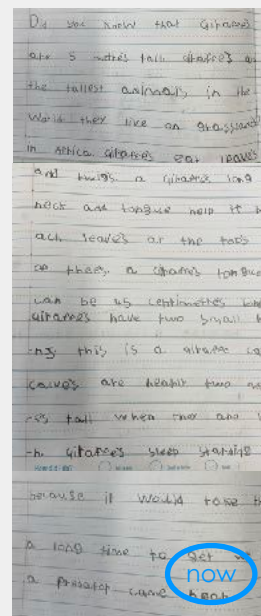 Did you know that Giraffes
are 5 metres tall giraffes a
the tallest animals in the
World they live on grassland
in Africa Giraffes eat leaves
and twigs a giraffes long
neck and tongue help it
ach leaves at the tops
a giraffes tongue
can be 45 centimetres
Giraffes have two small h
this is a giraffe ca
calves are two
tall when they are
giraffes sleep
because it would take th
a long time to get
a came near
now